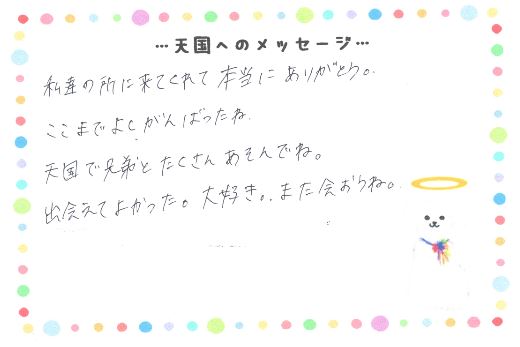 …天国へのメッセージ…
私達の所に来てくれて本当にありがとう。
ここまでよくがんばったね
天国で兄弟とたくさんあそんでね。
出会えてよかった。大好き。また会おうね。